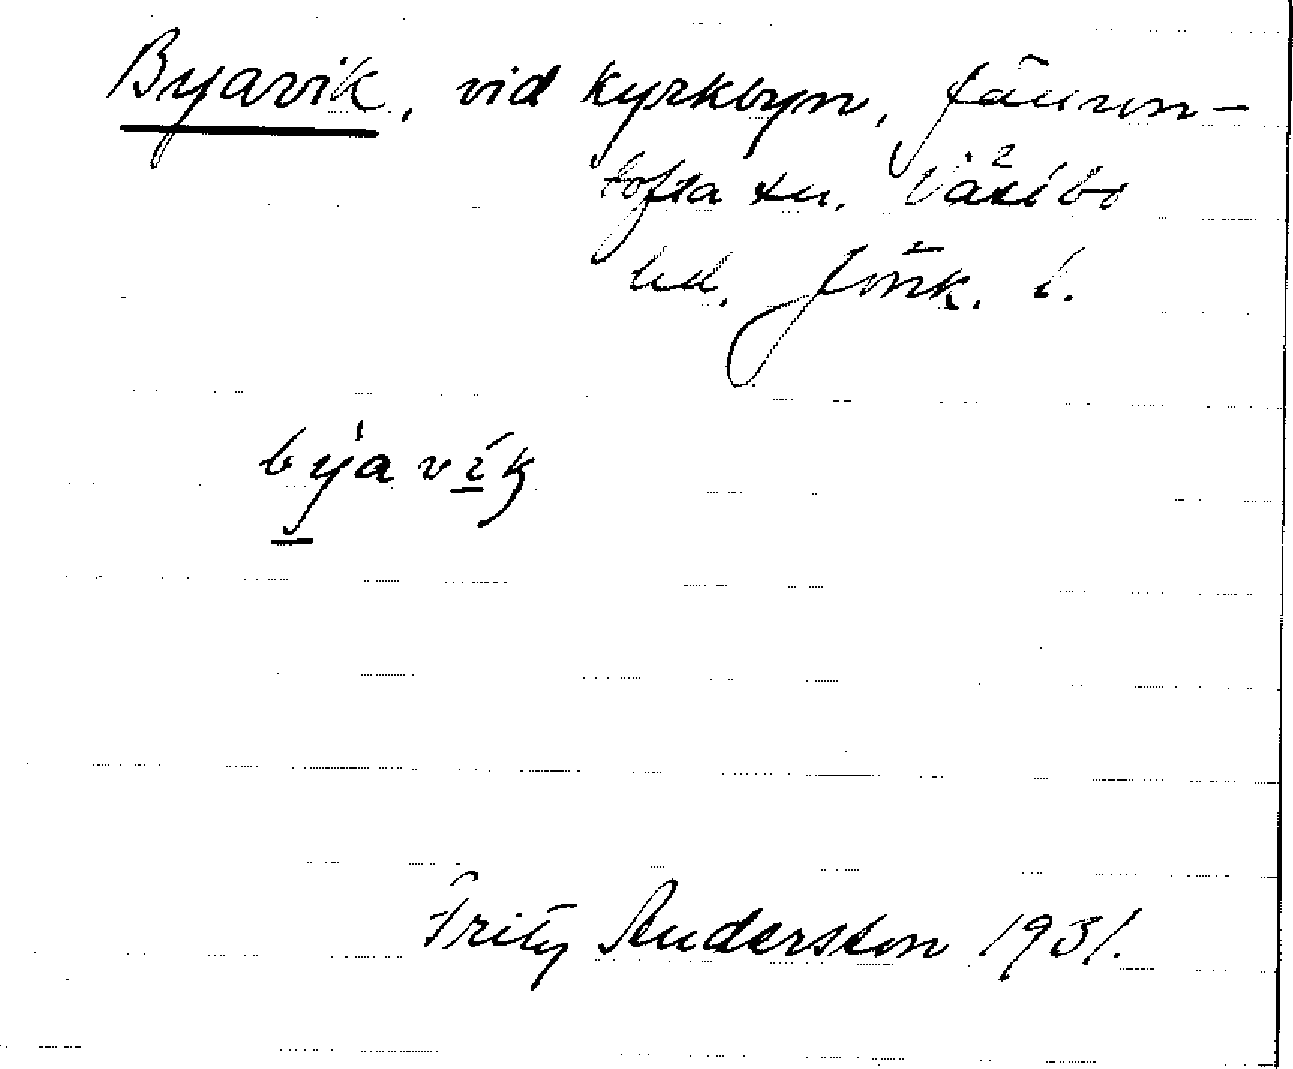 Byavik, vid kyrkbyn, Jäuren-
tofta sn. Västbo
hd. Jönk. l.
byavik
Fritz Andersson 1931.